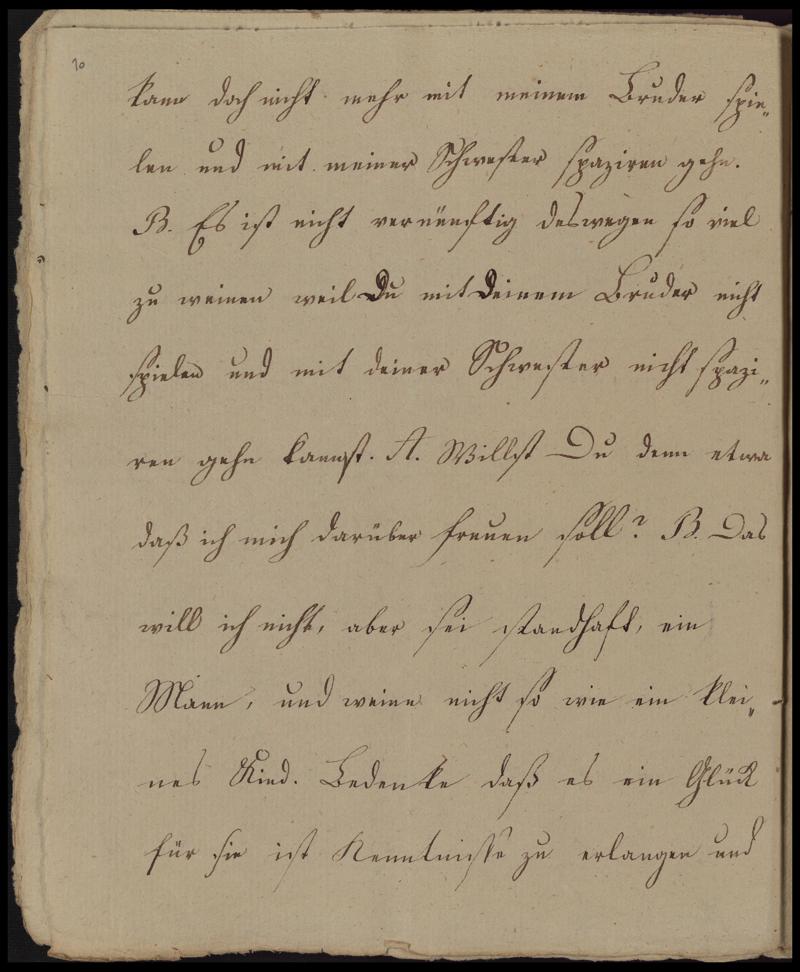 10
kann doch nicht mehr mit meinem Bruder spie„
len und mit meiner Schwester spaziren gehn.
B. Es ist nicht vernünftig deswegen so viel
zu weinen weil Du mit Deinem Bruder nicht
spielen und mit deiner Schwester nicht spazi„
ren gehn kannst. A. Willst Du denn etwa
daß ich mich darüber freuen soll? B. Das
will ich nicht, aber sei standhaft, ein
Mann, und weine nicht so wie ein klei„
nes Kind. Bedenke daß es ein Glück
für sie ist Kenntnisse zu erlangen und